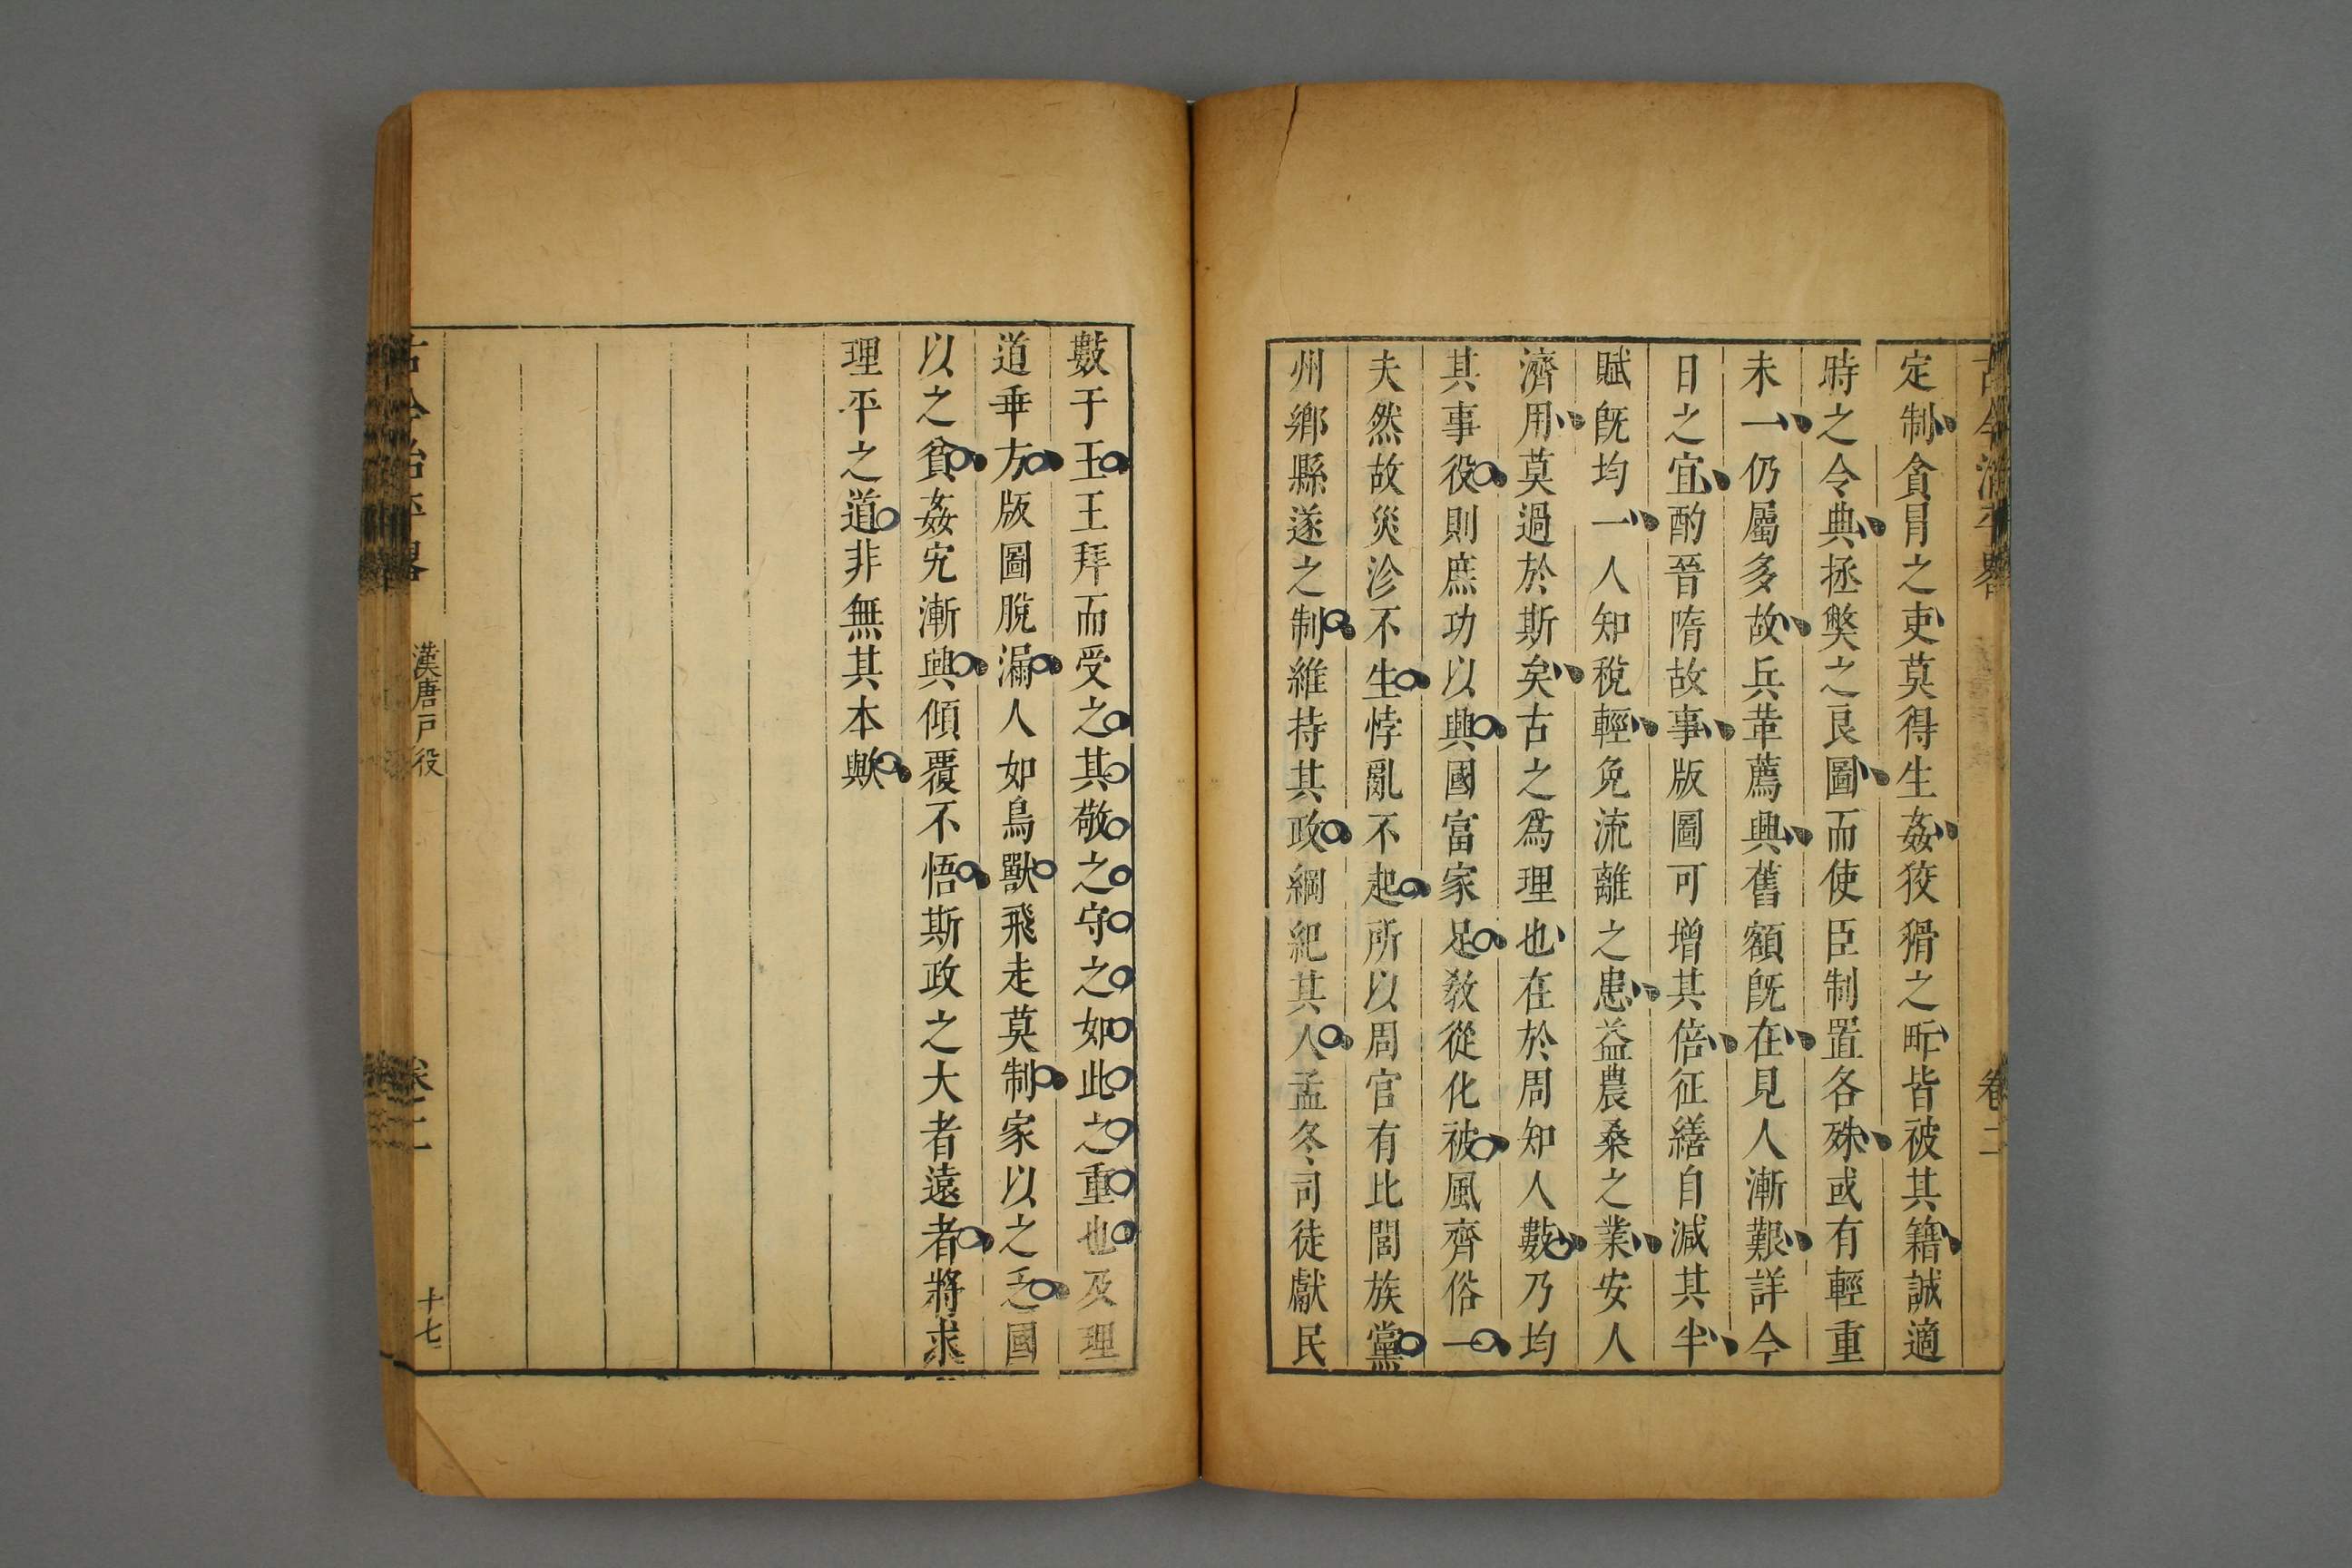 古今治平畧
卷二
定制貪冒之吏莫得生姦狡猾之甿皆被其籍誠適
時之令典拯獘之良圖而使臣制置各殊或有輕重
未一仍屬多故兵革薦興舊額旣在見人漸艱詳今
日之宜酌晉隋故事版圖可增其倍征繕自減其半
賦旣均一人知稅輕免流離之患益農桑之業安人
濟用莫過於斯矣古之爲理也在於周知人數乃均
其事役則庶功以興國富家足敎從化被風齊俗一
夫然故災沴不生悖亂不起所以周官有比閭族黨
州鄉縣遂之制維持其政綱紀其人孟冬司徒獻民
數于王王拜而受之其敬之守之如此之重也及理
道乖方版圖脫漏人如鳥獸飛走莫制家以之乏國
以之貧姦宄漸興傾覆不悟斯政之大者遠者將求
理平之道非無其本歟
古今治平畧
漢唐戸役
卷二
十七